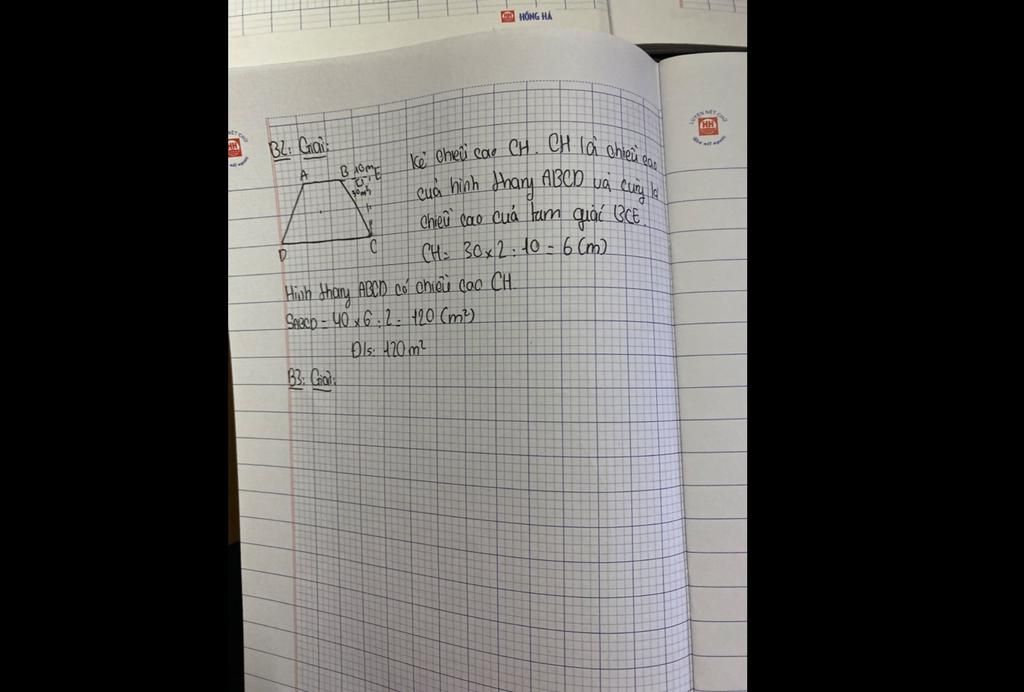 HỒNG HÀ
B2: Giải:
A B 10m E
30m²
D C
Kẻ chiều cao CH. CH là chiều cao
của hình thang ABCD và cũng là
chiều cao của tam giác BCE.
CH = 30 x 2 : 10 = 6 (m)
Hình thang ABCD có chiều cao CH.
SABCD = 40 x 6 : 2 = 120 (m²)
Đ/s: 120 m²
B3: Giải:
LUYỆN NÉT CHỮ
HH
RÈN NẾT NGƯỜI